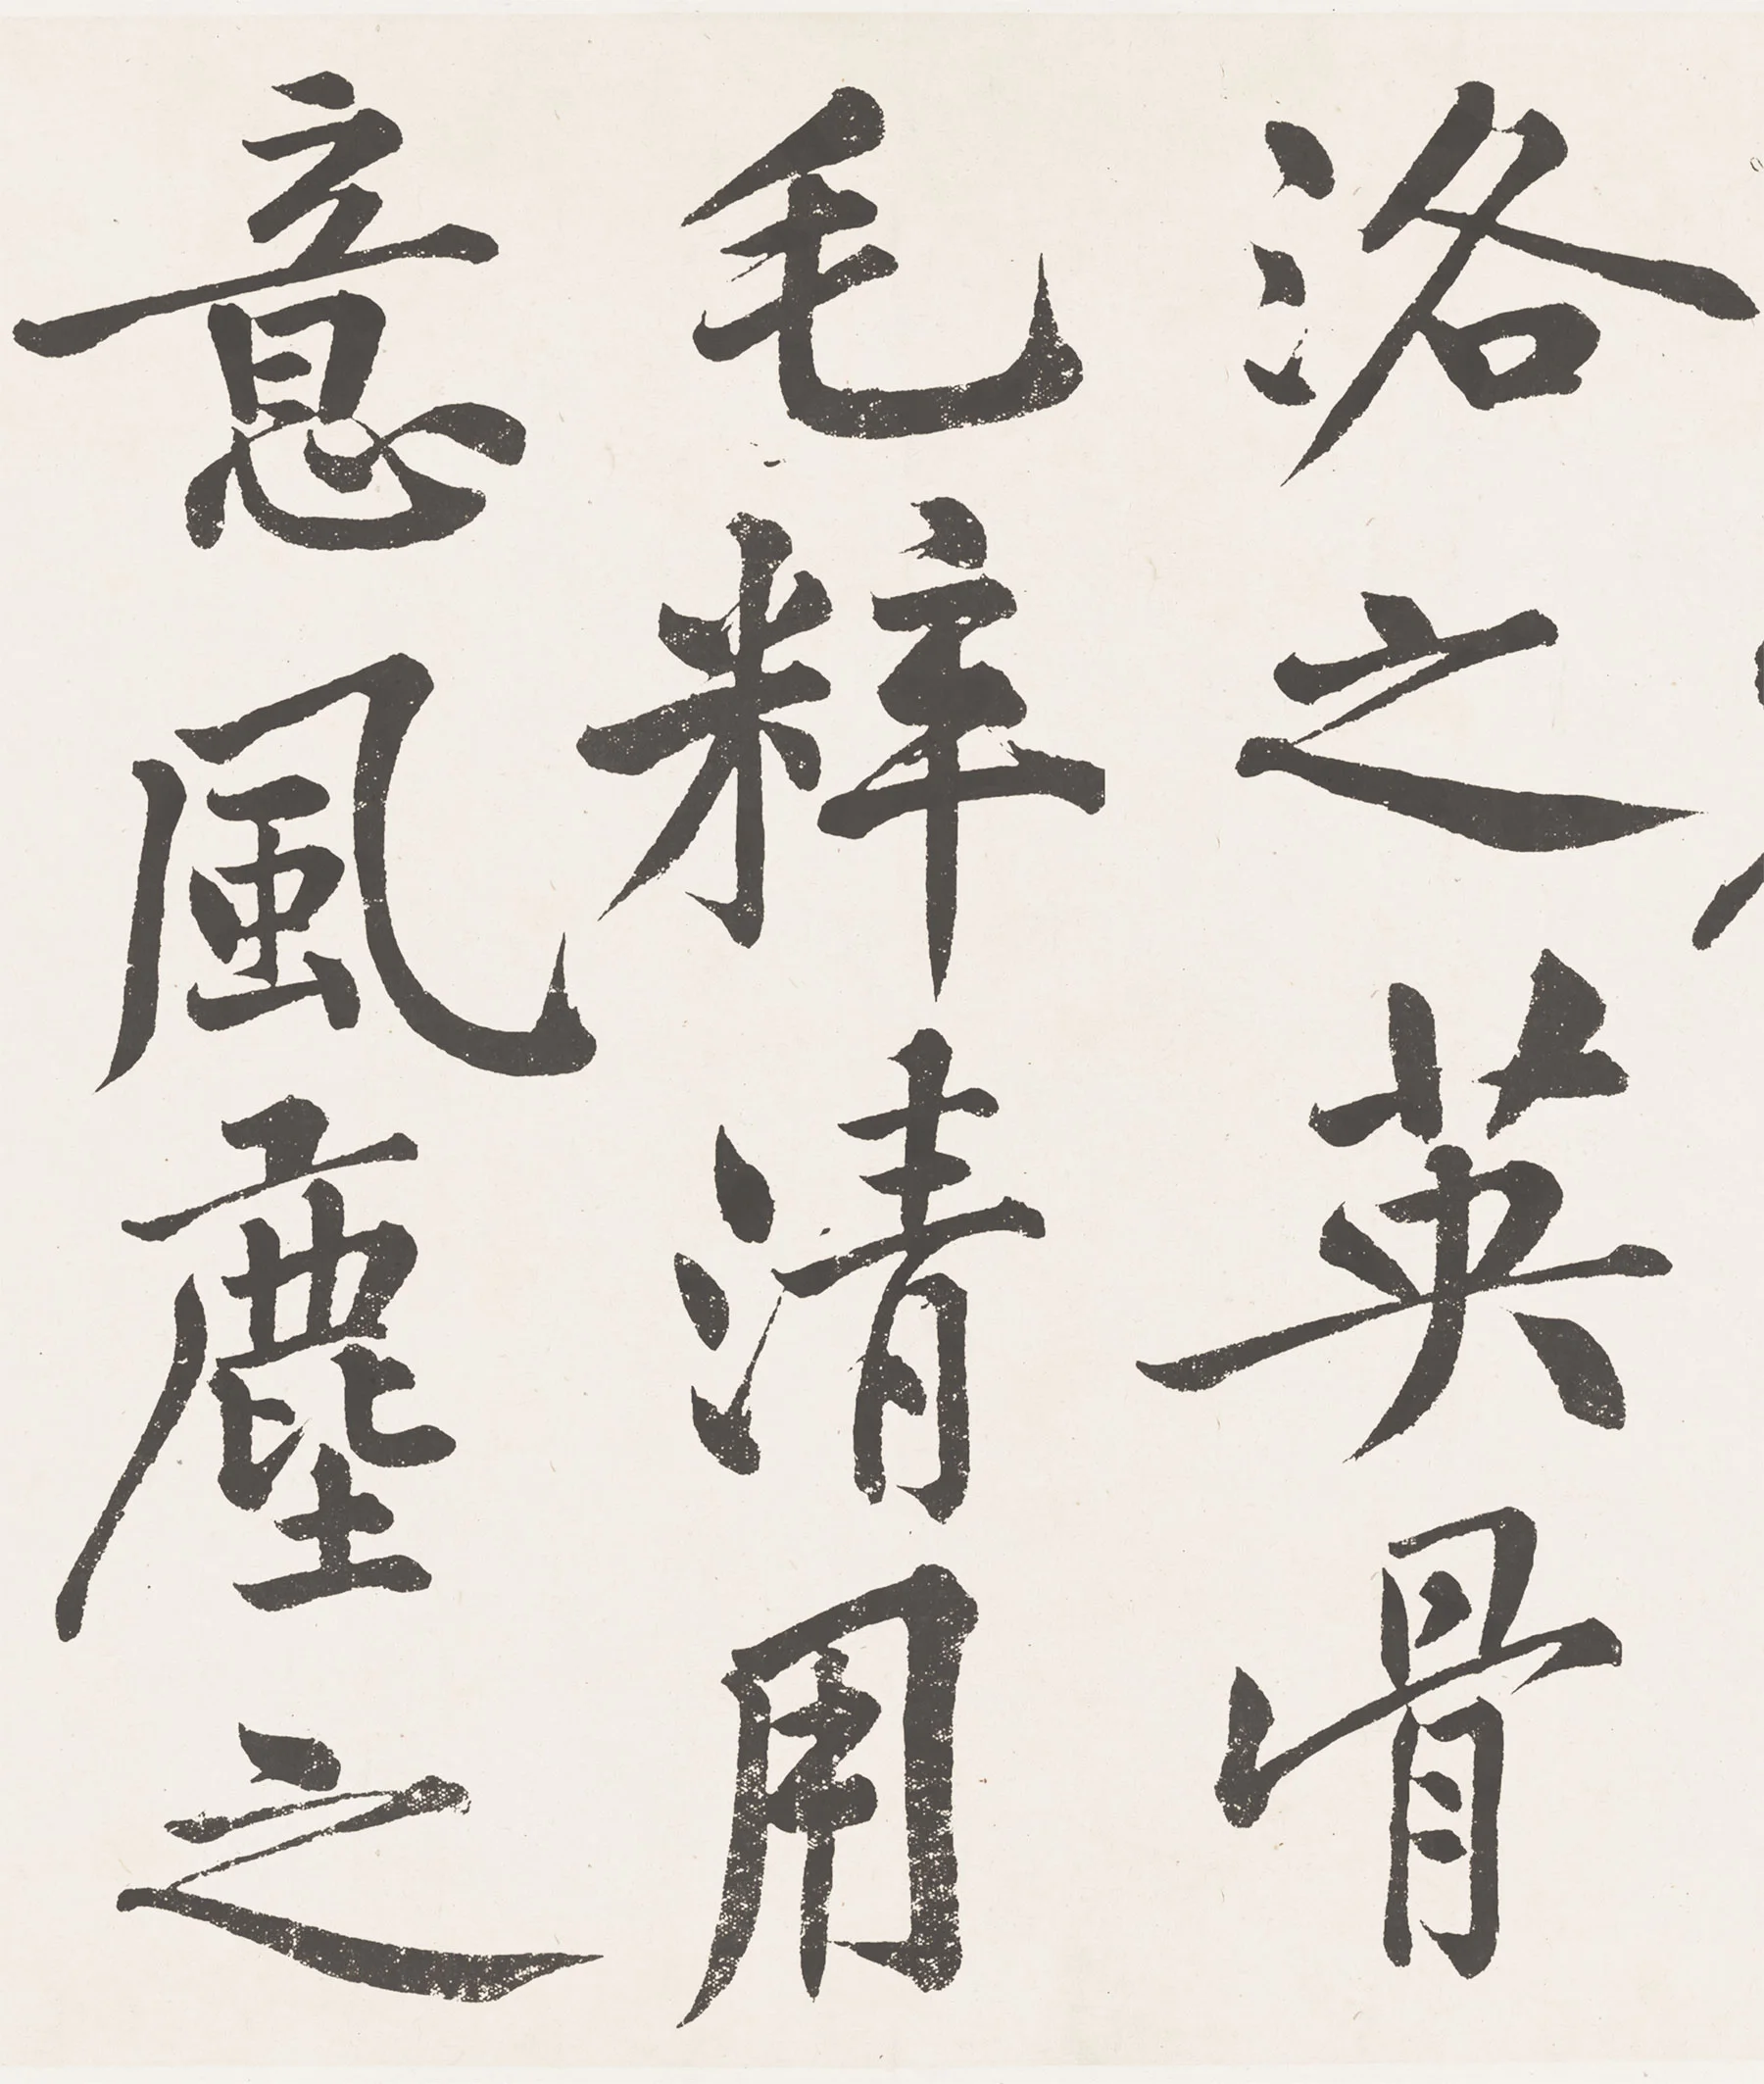 洛之英骨
毛粹清用
意風塵之